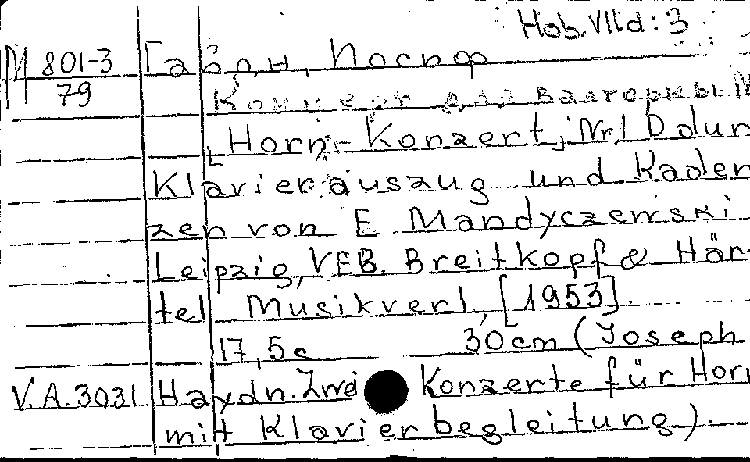 Hob. VIId: 3
M 801-3 Гайдн, Иосиф
79
Концерт для валторны. №
Horn- Konzert, Nr. 1 D dur
Klavierauszug und Kaden
zen von E. Mandyczewski
Leipzig, VEB. Breitkopf & Här-
tel Musikverl, [1953].
17,5c 30cm (Joseph
V.A.3031 Haydn. Zwei Konzerte für Horn
mit Klavierbegleitung)